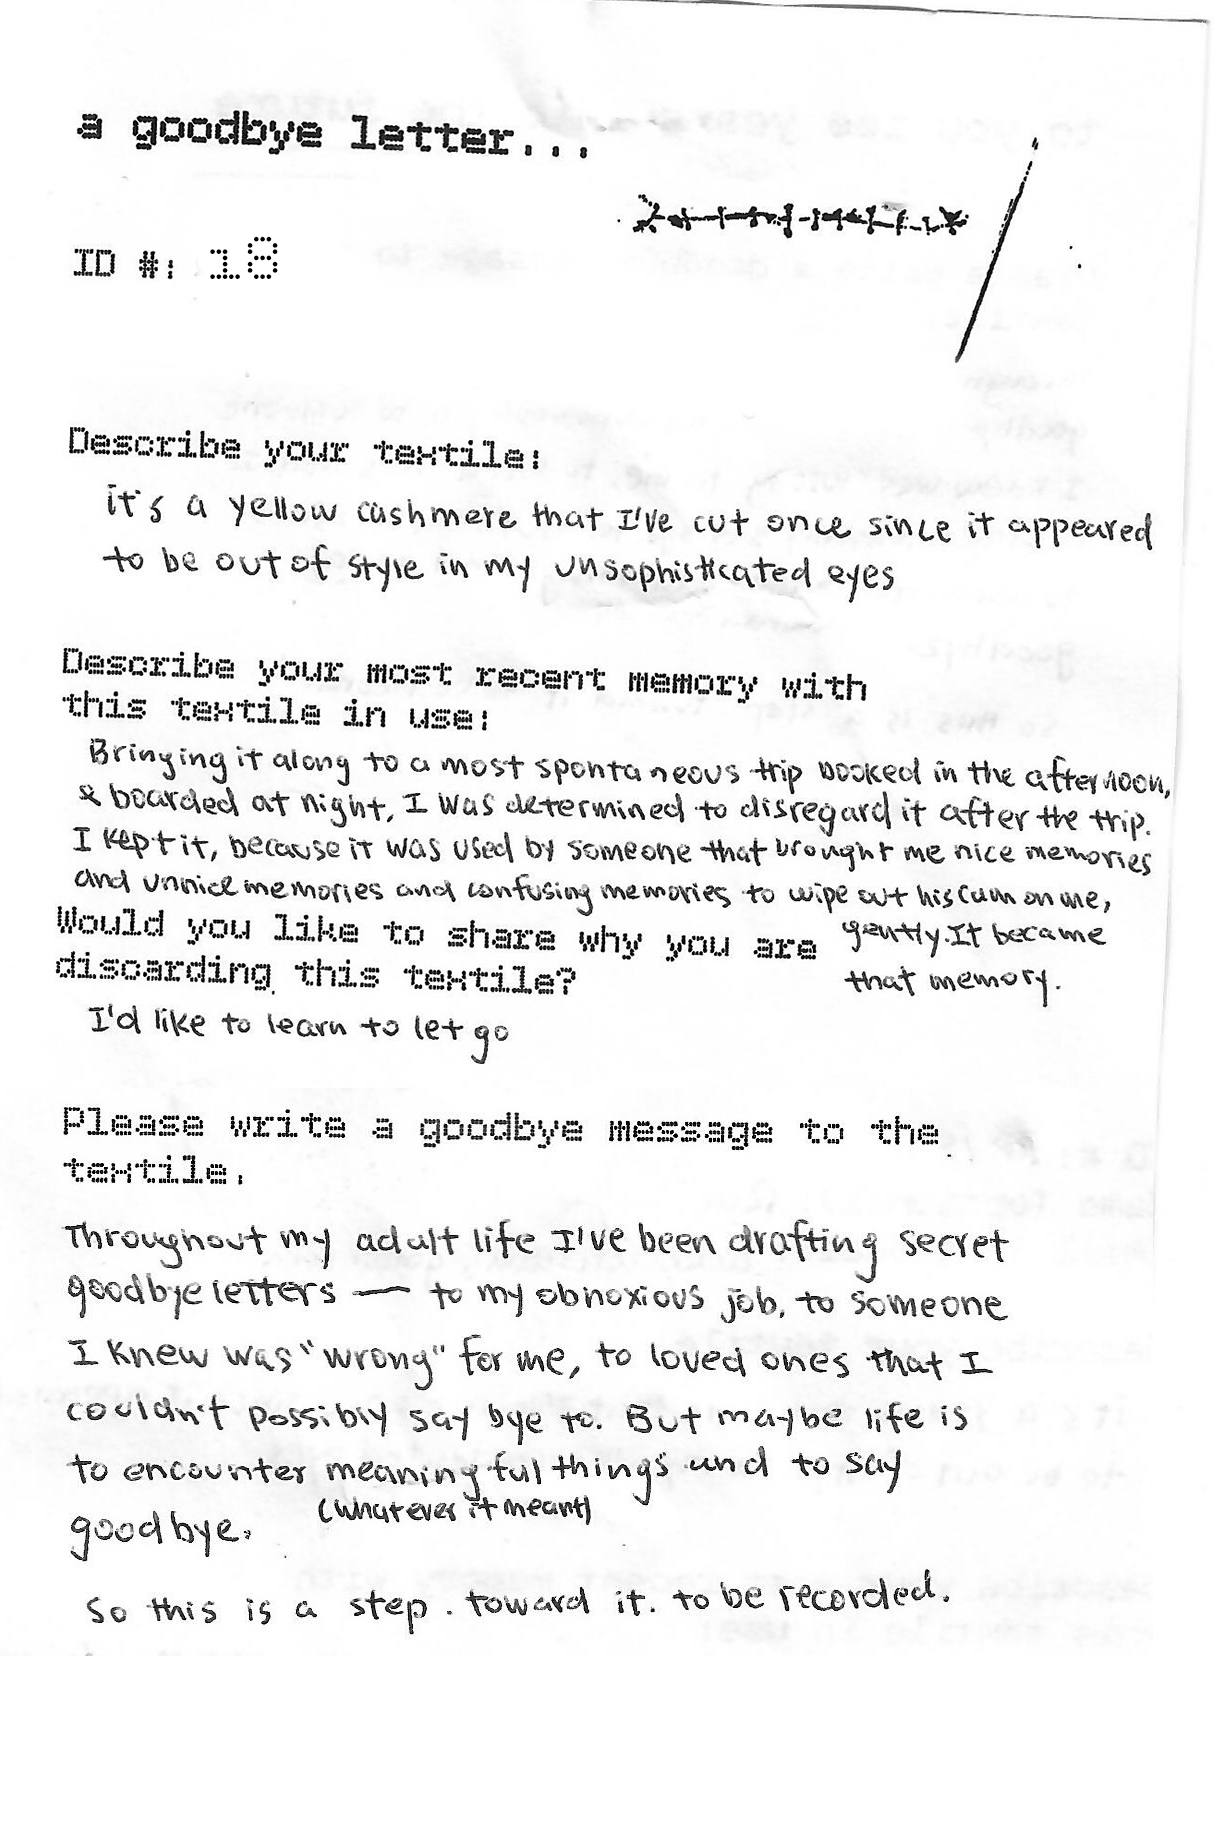 a goodbye letter...
ID #: 18
Describe your textile:
it's a yellow cashmere that I've cut once since it appeared
to be out of style in my unsophisticated eyes
Describe your most recent memory with
this textile in use:
Bringing it along to a most spontaneous trip booked in the afternoon,
& boarded at night, I was determined to disregard it after the trip.
I kept it, because it was used by someone that brought me nice memories
and unnice memories and confusing memories to wipe out his cum on me,
gently. It became
that memory.
Would you like to share why you are
discarding this textile?
I'd like to learn to let go
Please write a goodbye message to the
textile.
Throughout my adult life I've been drafting secret
goodbye letters — to my obnoxious job, to someone
I knew was "wrong" for me, to loved ones that I
couldn't possibly say bye to. But maybe life is
to encounter meaningful things and to say
goodbye. (whatever it meant)
So this is a step. toward it. to be recorded.